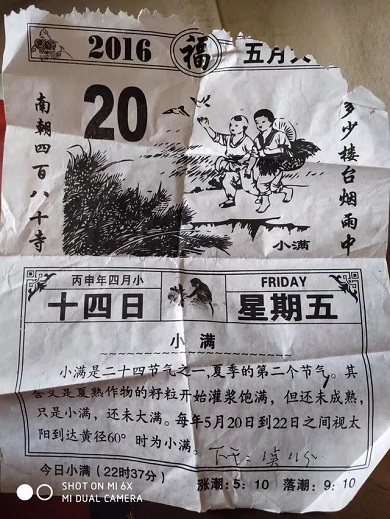 2016 福 五月大
20
南朝四百八十寺
多少楼台烟雨中
小满
丙申年四月小
十四日
FRIDAY
星期五
小满
小满是二十四节气之一,夏季的第二个节气。其
含义是夏熟作物的籽粒开始灌浆饱满,但还未成熟,
只是小满,还未大满。每年5月20日到22日之间视太
阳到达黄径60°时为小满。
今日小满(22时37分)
涨潮:5:10 落潮:9:10
SHOT ON MI 6X
MI DUAL CAMERA